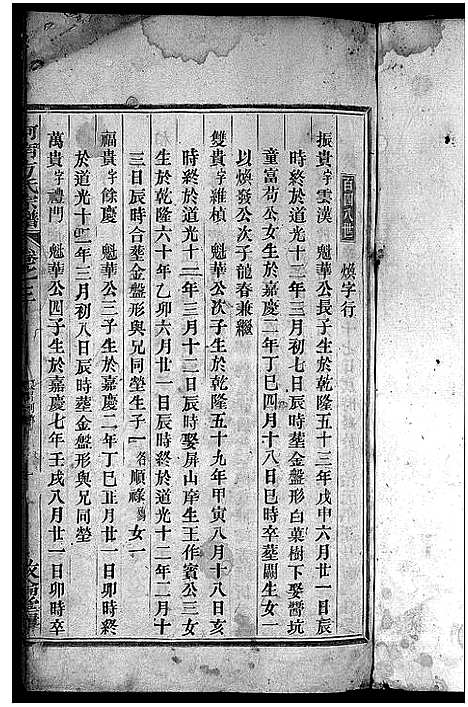 百四八世　煥字行
振貴字雲漢　魁華公長子生於乾隆五十三年戊申六月廿一日辰
時終於道光十二年三月初七日辰時塟金盤形白菓樹下娶醫坑
童富苟公女生於嘉慶二年丁巳四月十八日巳時卒墓闕生女一
以煥發公次子龍春兼繼
雙貴字維楨　魁華公次子生於乾隆五十九年甲寅八月十八日亥
時終於道光十二年三月十二日辰時娶屏山庠生王作賓公三女
生於乾隆六十年乙卯六月廿一日辰時終於道光十二年二月十
三日辰時合塟金盤形與兄同塋生子一名順祿女一
福貴字餘慶　魁華公三子生於嘉慶二年丁巳正月廿一日卯時終
於道光十二年三月初八日辰時塟金盤形與兄同塋
萬貴字禮門　魁華公四子生於嘉慶七年壬戌八月廿一日卯時卒
河南方氏宗譜　卷之三